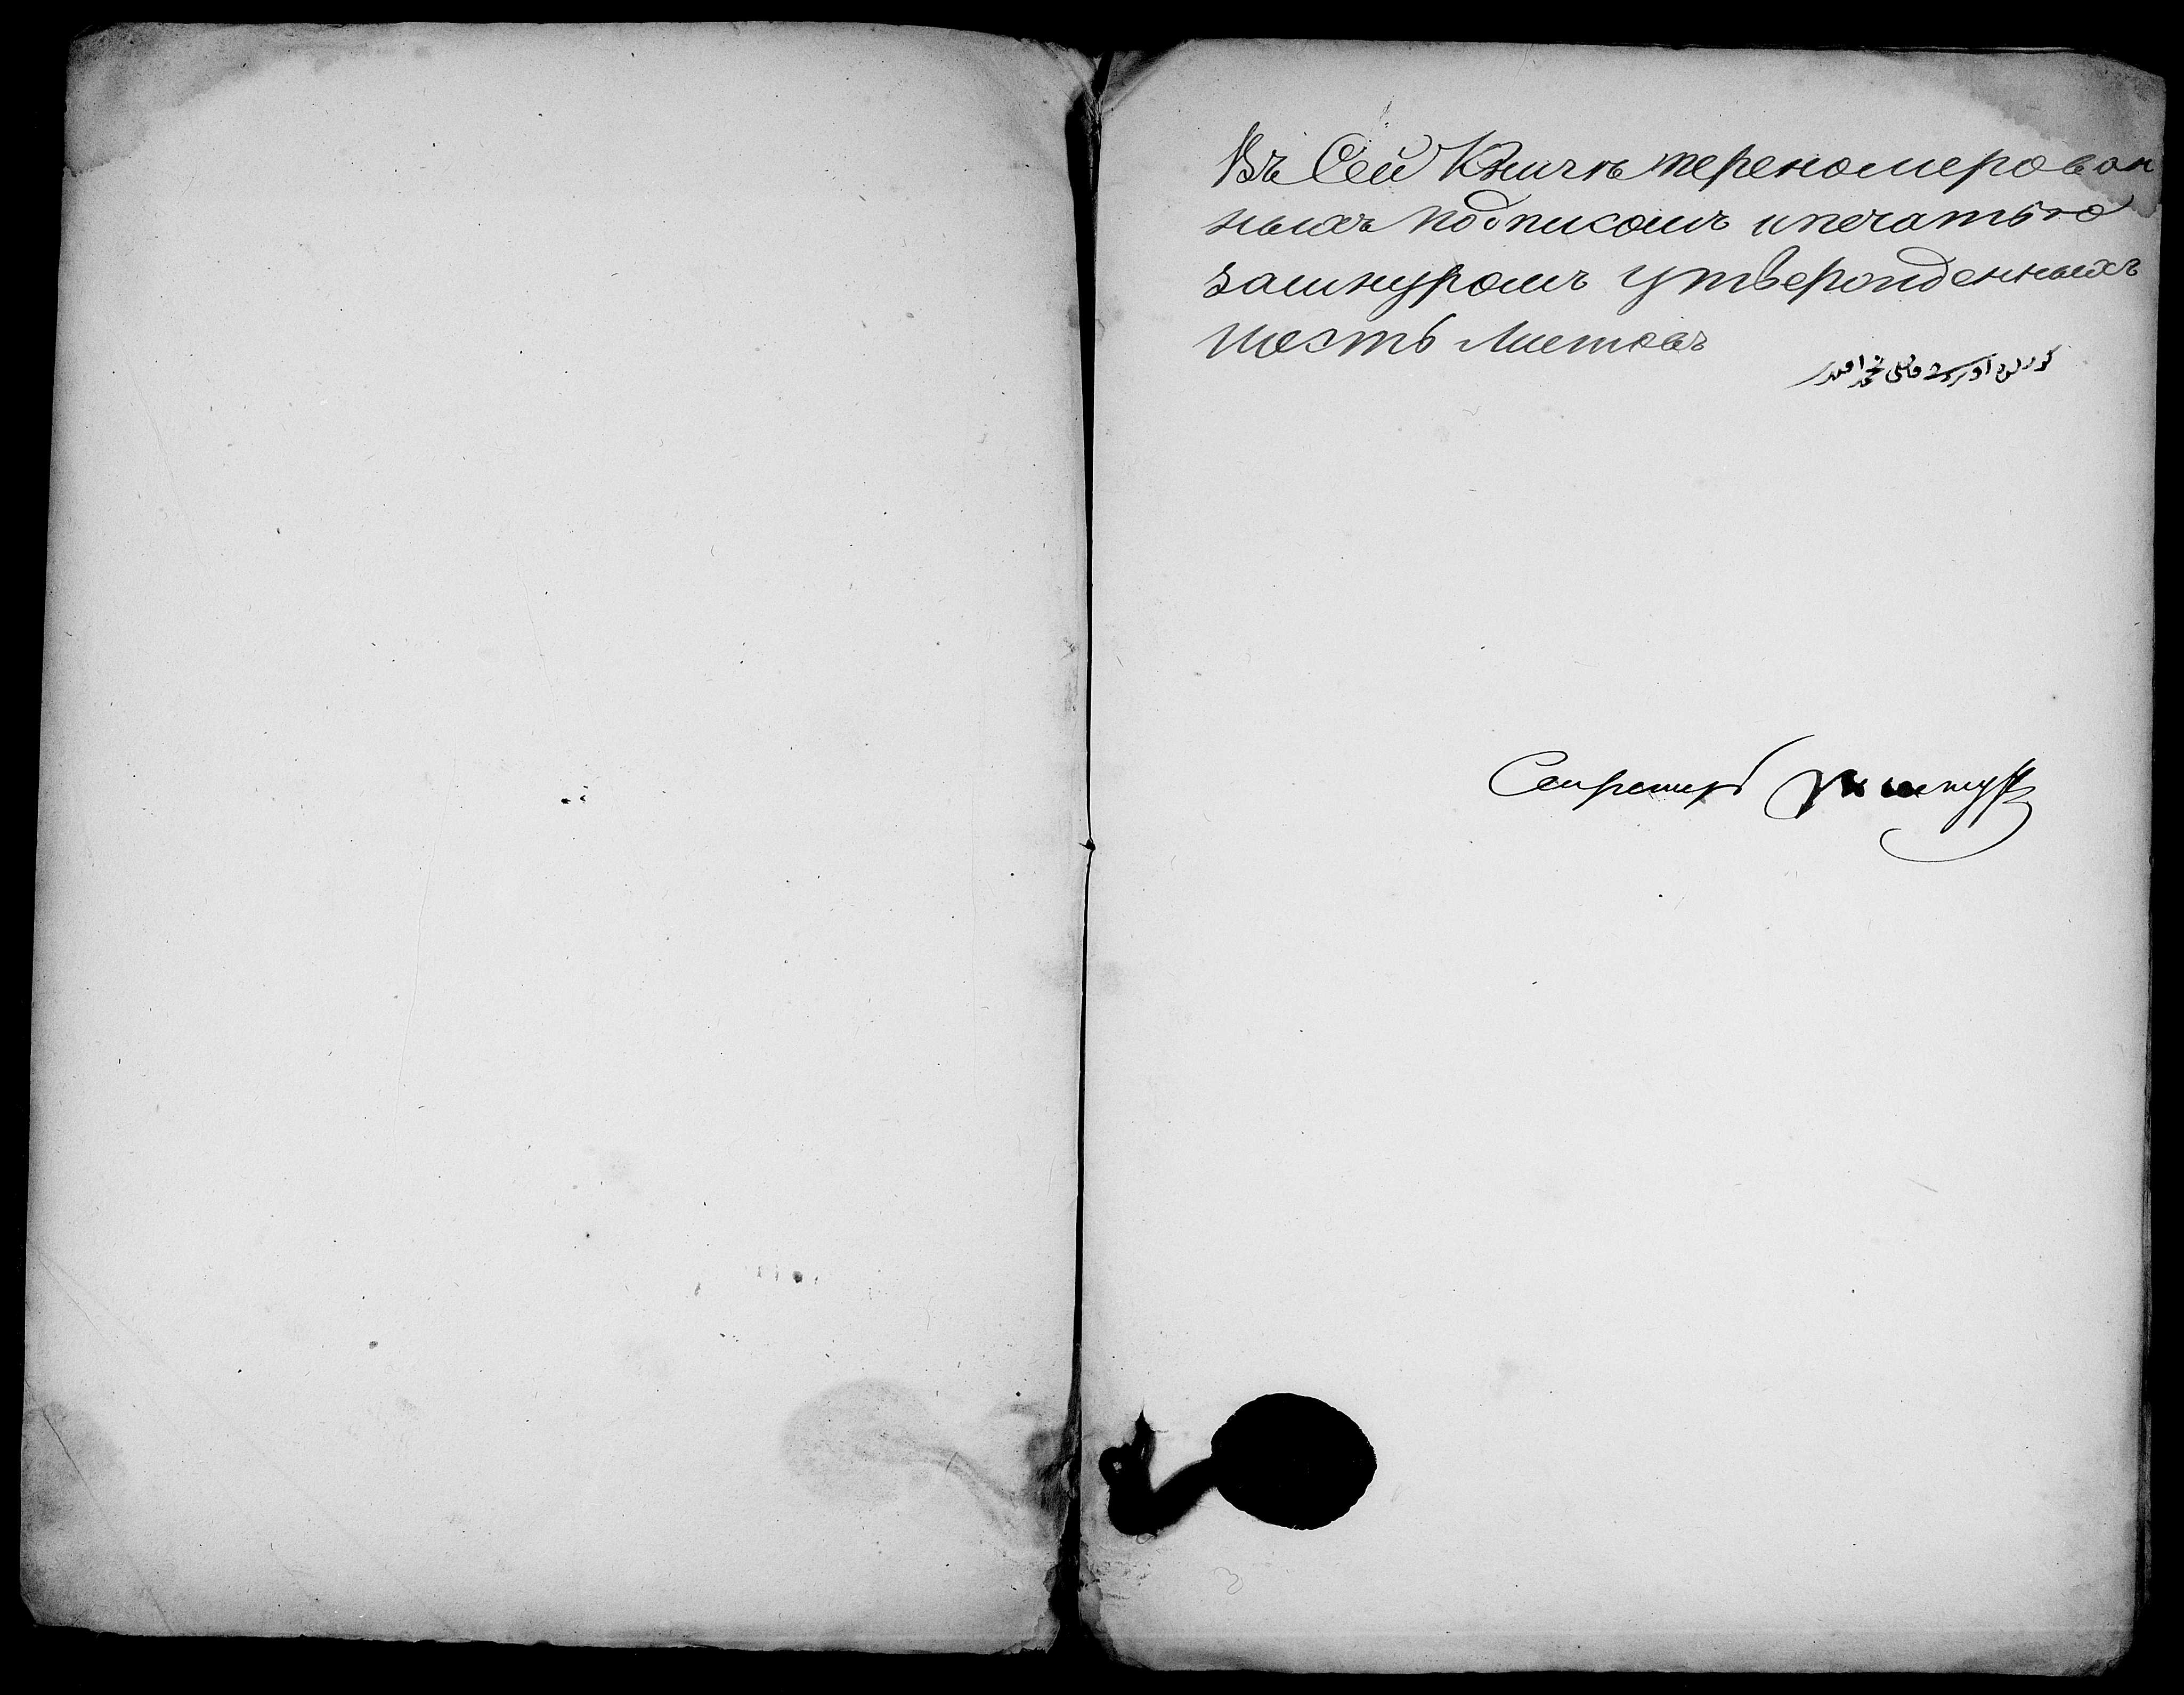 Въ Сей Книгѣ переномерован
ныхъ подписомъ ипечатью
зашнуромъ утвержденныхъ
шесть листовъ
Секретарь